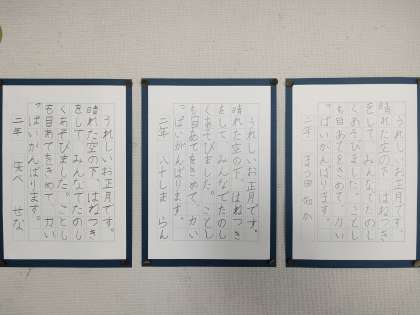 うれしいお正月です。
晴れた空の下、はねつき
をして、みんなでたのし
くあそびました。ことし
も目あてをきめて、力い
っぱいがんばります。
二年 せな
うれしいお正月です。
晴れた空の下、はねつき
をして、みんなでたのし
くあそびました。ことし
も目あてをきめて、力い
っぱいがんばります。
二年 八十しま らん
うれしいお正月です。
晴れた空の下、はねつき
をして、みんなでたのし
くあそびました。ことし
も目あてをきめて、力い
っぱいがんばります。
二年